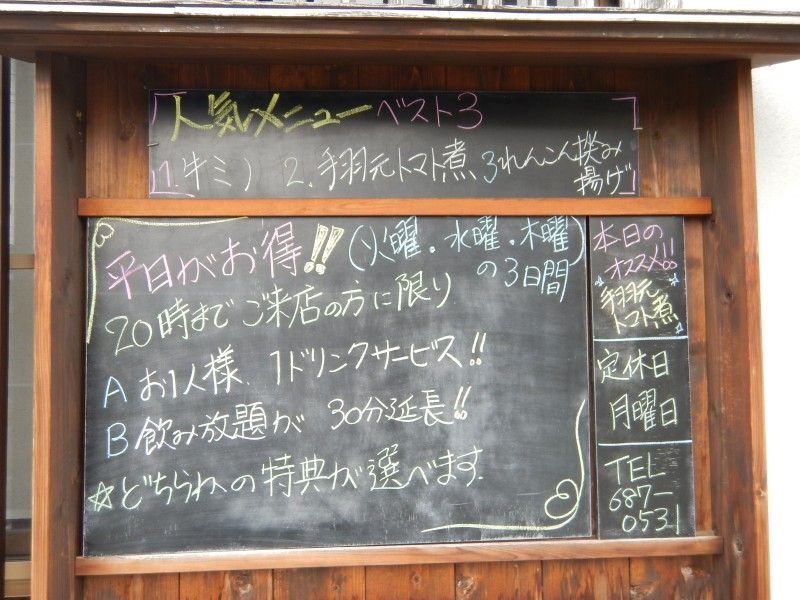 人気メニューベスト3
1.牛ミノ 2.手羽元トマト煮 3れんこん挟み
揚げ
平日がお得!! (火曜・水曜・木曜)
の3日間
20時までご来店の方に限り
A お1人様、1ドリンクサービス!!
B 飲み放題が 30分延長!!
☆どちらかの特典が選べます。
本日の
オススメ!!
手羽元
トマト煮
定休日
月曜日
TEL
687-
0531